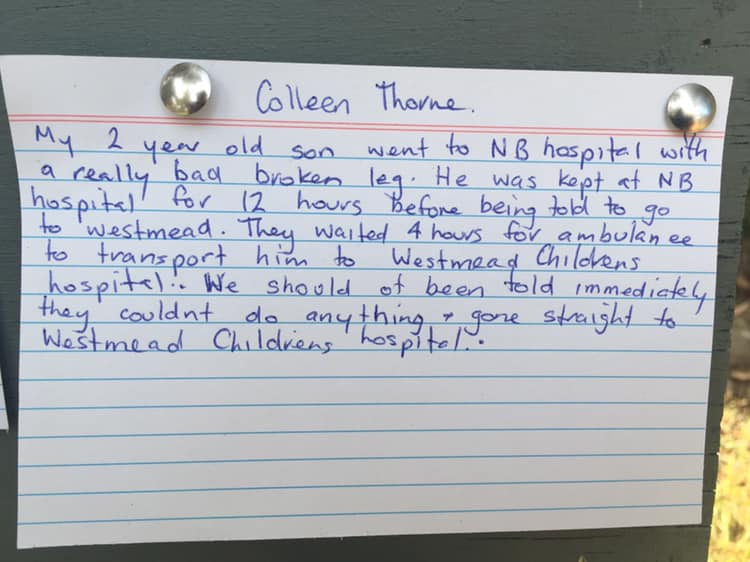 Colleen Thorne.
My 2 year old son went to NB hospital with
a really bad broken leg. He was kept at NB
hospital for 12 hours before being told to go
to westmead. They waited 4 hours for ambulance
to transport him to Westmead Childrens
hospital.. We should of been told immediately
they couldnt do anything + gone straight to
Westmead Childrens hospital..